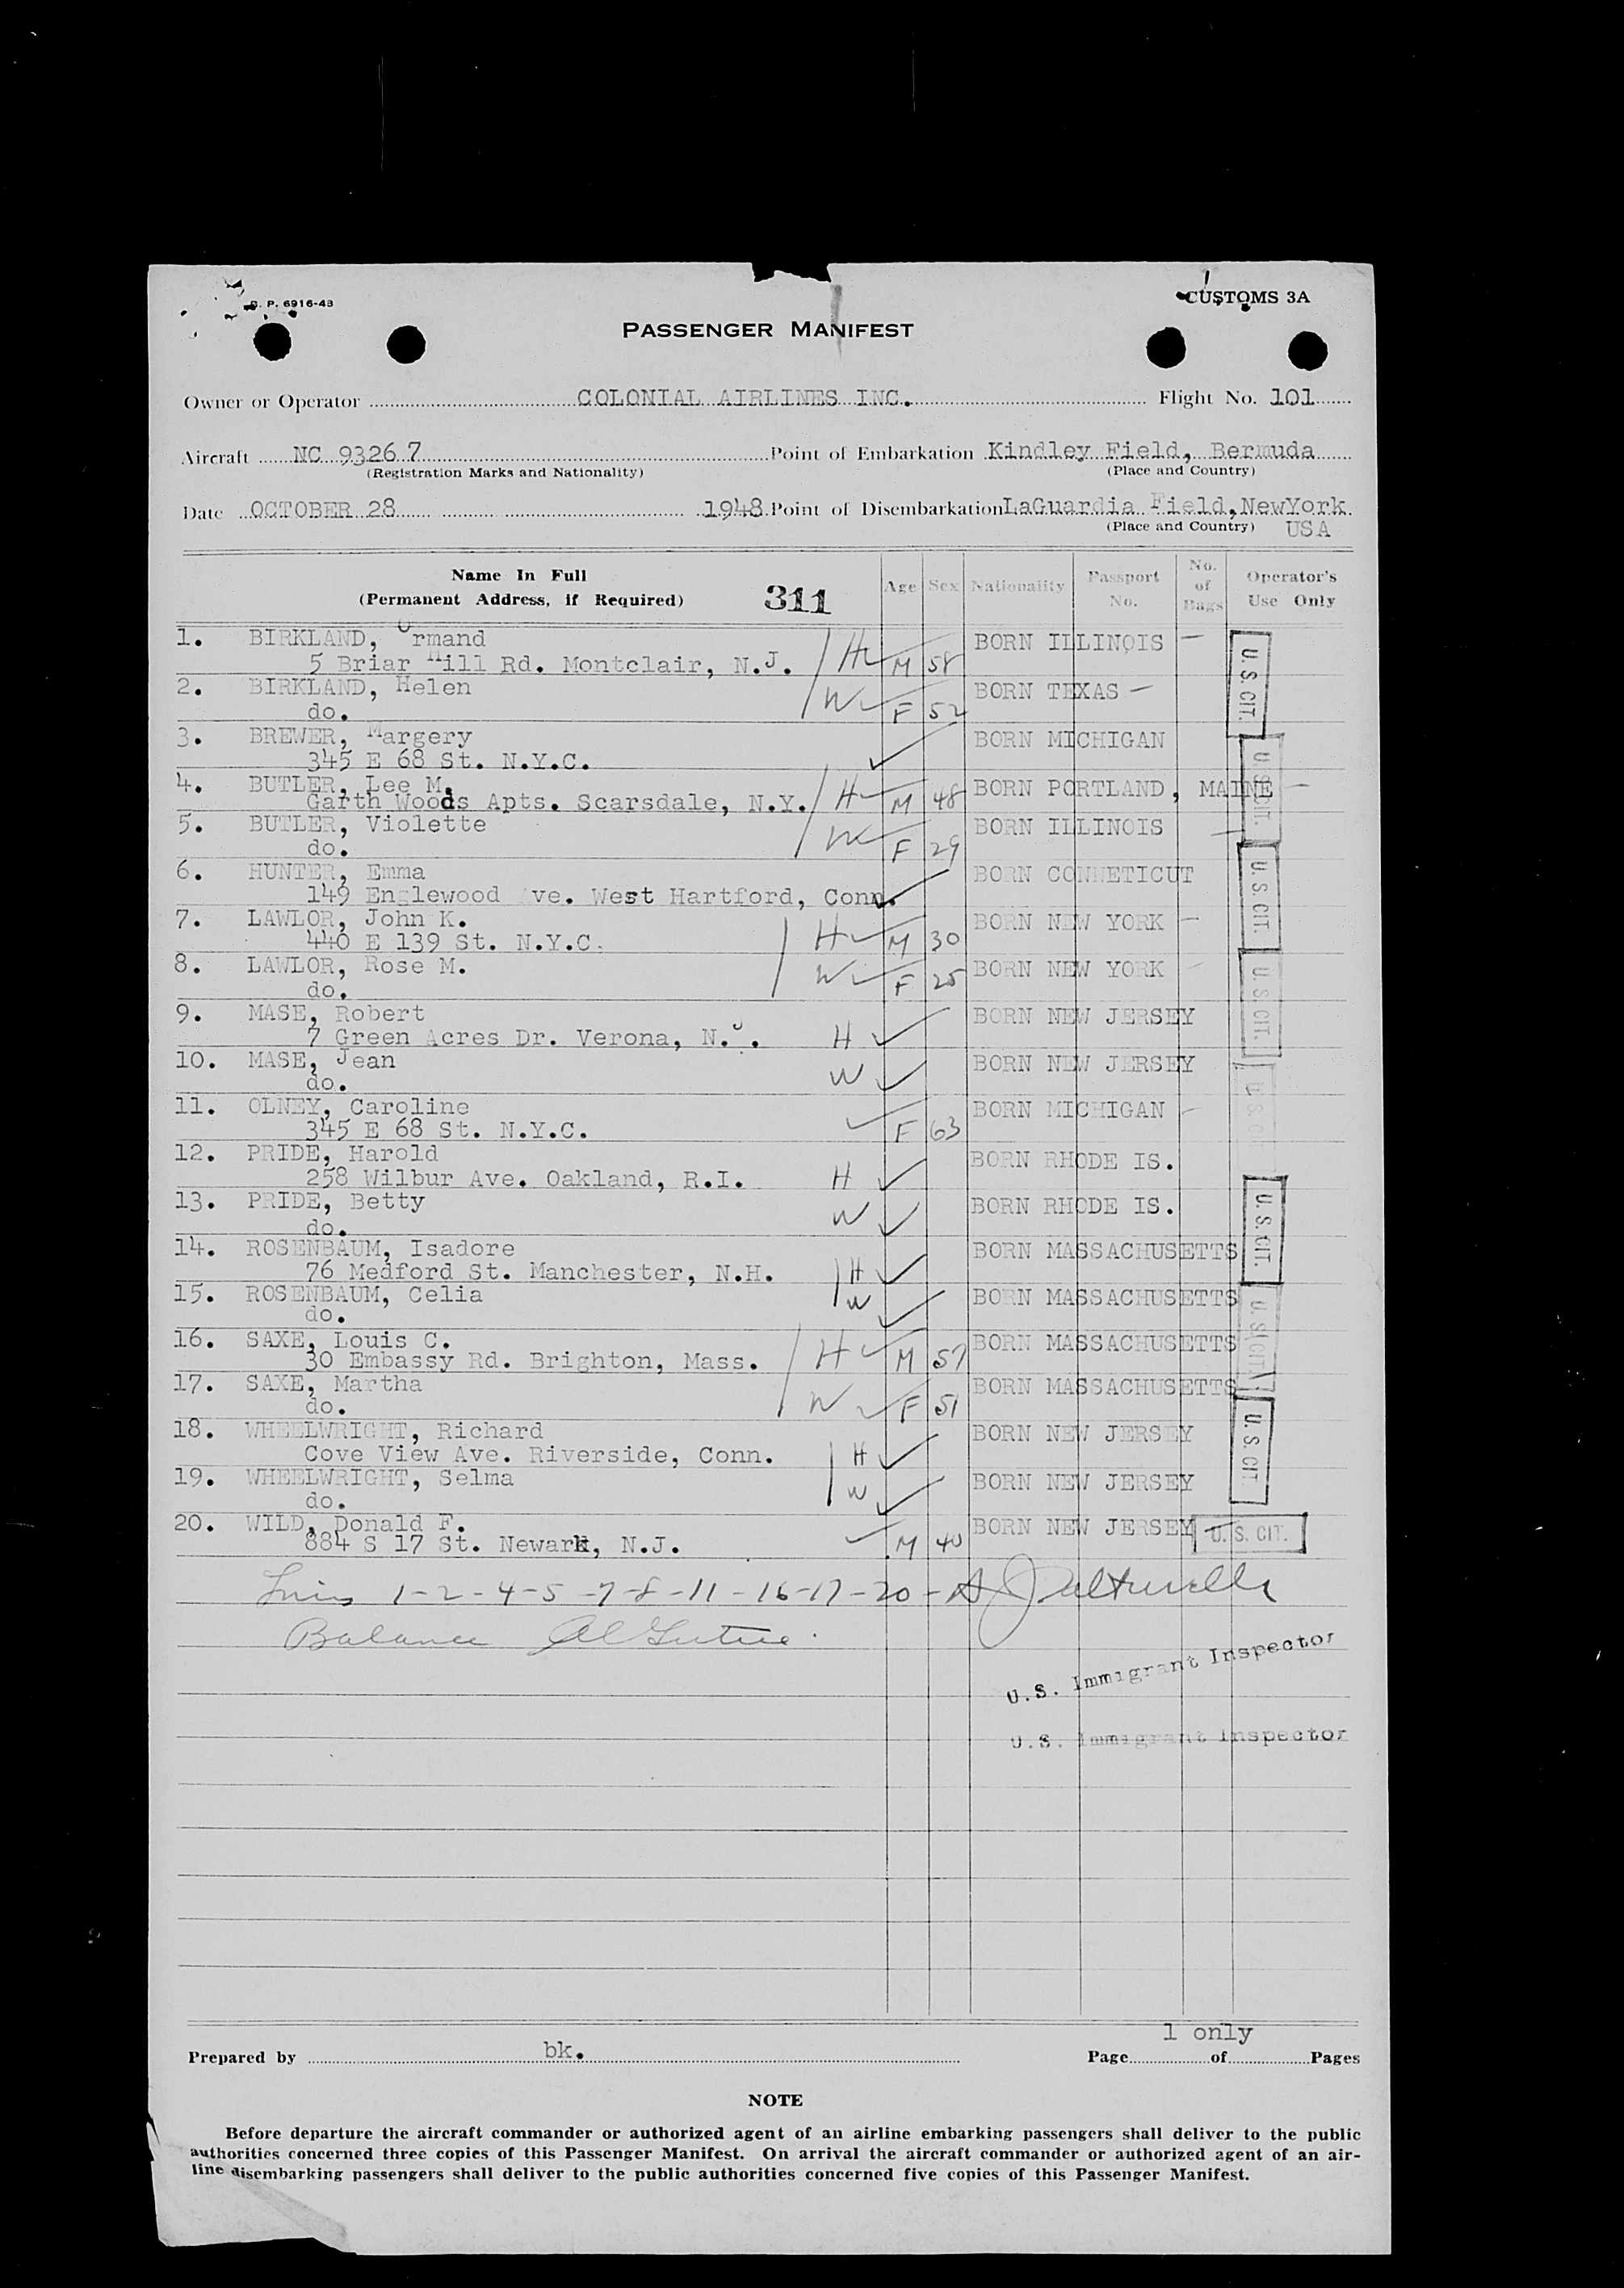 G. P. 6916-48
CUSTOMS 3A
PASSENGER MANIFEST
Owner or Operator COLONIAL AIRLINES INC. Flight No. 101
Aircraft NC 93267 Point of Embarkation Kindley Field, Bermuda
(Registration Marks and Nationality) (Place and Country)
Date OCTOBER 28 1948 Point of Disembarkation LaGuardia Field, NewYork
(Place and Country) USA
Name In Full
(Permanent Address, if Required) 311 Age Sex Nationality Passport No. No. of Bags Operator's Use Only
1. BIRKLAND, Ormand BORN ILLINOIS —
5 Briar Hill Rd. Montclair, N.J. H M 58
2. BIRKLAND, Helen BORN TEXAS —
do. W F 52
U.S. CIT.
3. BREWER, Margery BORN MICHIGAN
345 E 68 St. N.Y.C.
4. BUTLER, Lee M. BORN PORTLAND, MAINE —
Garth Woods Apts. Scarsdale, N.Y. H M 48
U.S. CIT.
5. BUTLER, Violette BORN ILLINOIS —
do. W F 29
6. HUNTER, Emma BORN CONNETICUT
149 Englewood ve. West Hartford, Conn.
U.S. CIT.
7. LAWLOR, John K. BORN NEW YORK —
440 E 139 St. N.Y.C. H M 30
8. LAWLOR, Rose M. BORN NEW YORK —
do. W F 25
U.S. CIT.
9. MASE, Robert BORN NEW JERSEY
7 Green Acres Dr. Verona, N.J. H
10. MASE, Jean BORN NEW JERSEY
do. W
11. OLNEY, Caroline BORN MICHIGAN —
345 E 68 St. N.Y.C. F 63
12. PRIDE, Harold BORN RHODE IS.
258 Wilbur Ave. Oakland, R.I. H
13. PRIDE, Betty BORN RHODE IS.
do. W
U.S. CIT.
14. ROSENBAUM, Isadore BORN MASSACHUSETTS
76 Medford St. Manchester, N.H. H
15. ROSENBAUM, Celia BORN MASSACHUSETTS
do. W
U.S. CIT.
16. SAXE, Louis C. BORN MASSACHUSETTS
30 Embassy Rd. Brighton, Mass. H M 57
17. SAXE, Martha BORN MASSACHUSETTS
do. W F 51
18. WHEELWRIGHT, Richard BORN NEW JERSEY
Cove View Ave. Riverside, Conn. H
U.S. CIT.
19. WHEELWRIGHT, Selma BORN NEW JERSEY
do. W
20. WILD, Donald F. BORN NEW JERSEY U.S. CIT.
884 S 17 St. Newark, N.J. M 40
1-2-4-5-7-8-11-16-17-20-
Balance
U.S. Immigrant Inspector
U.S. Immigrant Inspector
1 only
Prepared by bk. Page of Pages
NOTE
Before departure the aircraft commander or authorized agent of an airline embarking passengers shall deliver to the public
authorities concerned three copies of this Passenger Manifest. On arrival the aircraft commander or authorized agent of an air-
line disembarking passengers shall deliver to the public authorities concerned five copies of this Passenger Manifest.